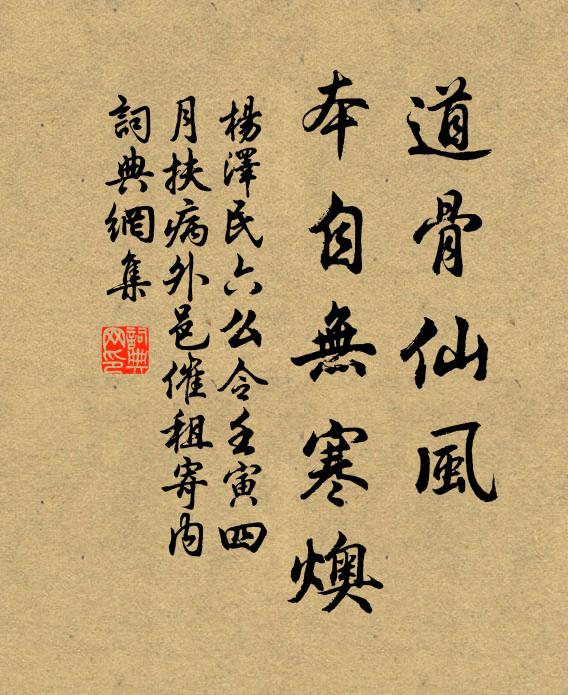 道骨仙風
本自無寒燠
楊澤民六么令壬寅四
月扶病外邑催租寄内
詞典網集
詞典
网印